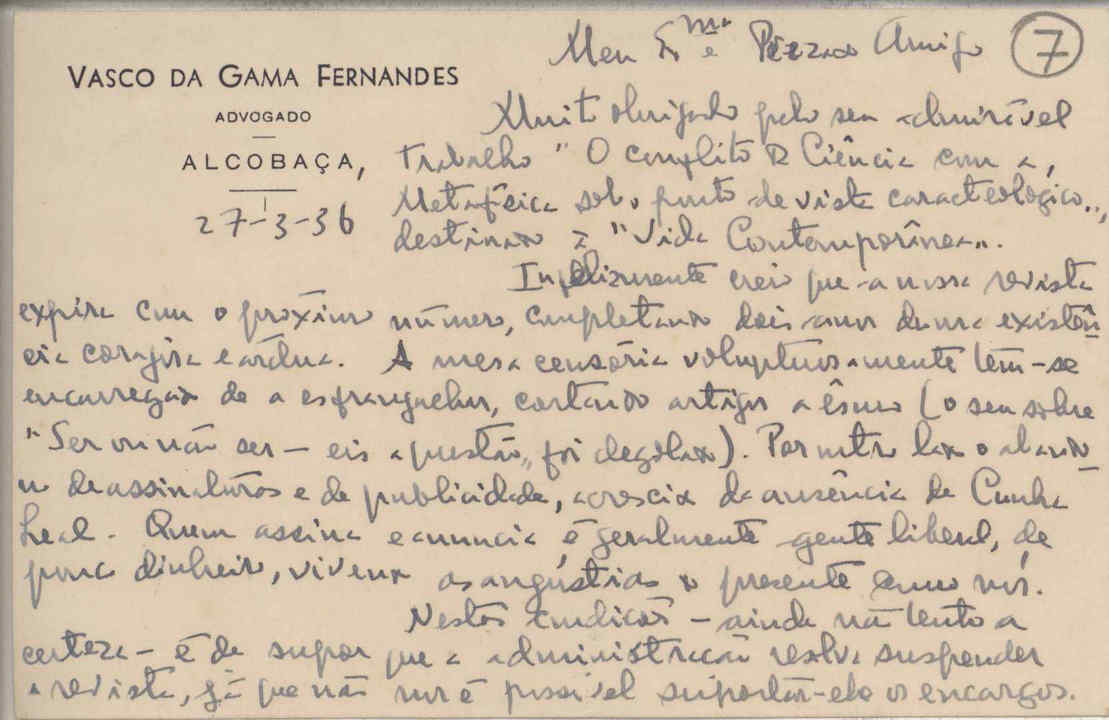 7
Meu Exmo e Prezado Amigo
VASCO DA GAMA FERNANDES
ADVOGADO
ALCOBAÇA,
27-3-36
Muito obrigado pelo seu admirável
trabalho "O conflito da Ciência com a
Metafísica sob o ponto de vista caracteológico",
destinado à "Vida Contemporânea".
Infelizmente creio que a nossa revista
expira com o próximo número, completando dois anos duma existên-
cia corajosa e árdua. A mesa censória voluptuosamente tem-se
encarregado de a esfrangalhar, cortando artigos a êsmo (o seu sobre
"Ser ou não ser – eis a questão" foi degolado). Por outro lado o abando-
no de assinaturas e de publicidade, acrescido da ausência de Cunha
Leal. Quem assina e anuncia é geralmente gente liberal, de
pouco dinheiro, vivendo as angústias do presente como nós.
Nestas condições – ainda não tenho a
certeza – é de supor que a administração resolva suspender
a revista, já que não nos é possível suportar-ela os encargos.